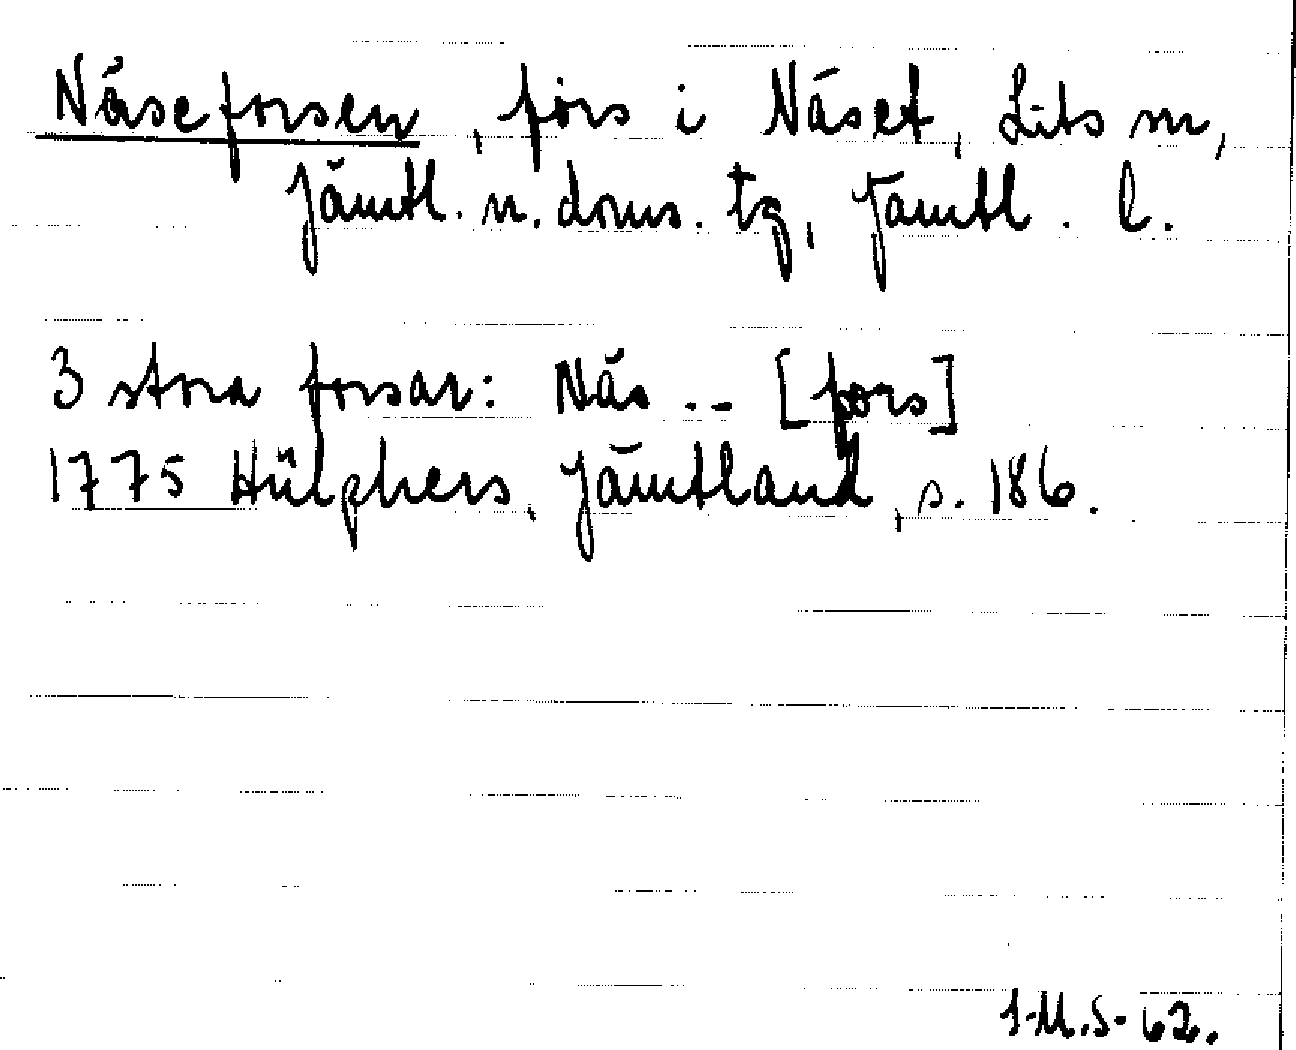 Näseforsen, fors i Näset, Lits sn,
Jämtl. n. doms. tg, Jämtl. l.
3 stora forsar: Näs -- [fors]
1775 Hülphers, Jämtland, s. 186.
I.M.S-62.